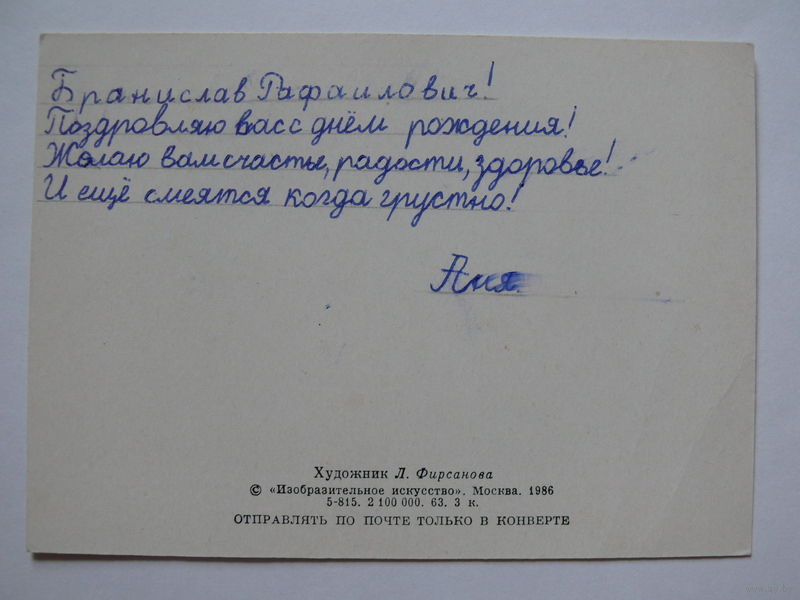 Бранислав Рафаилович!
Поздровляю васс днём рождения!
Желаю вам счастье, радости, здоровье!
И ещё смеятся когда грустно!
Аня.
Художник Л. Фирсанова
© «Изобразительное искусство». Москва. 1986
5-815. 2 100 000. 63. 3 к.
ОТПРАВЛЯТЬ ПО ПОЧТЕ ТОЛЬКО В КОНВЕРТЕ